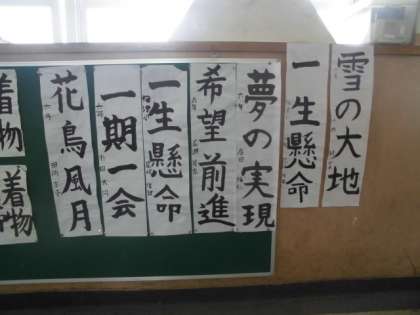 雪の大地
一生懸命
夢の実現
希望前進
一生懸命
一期一会
花鳥風月
着物
着物